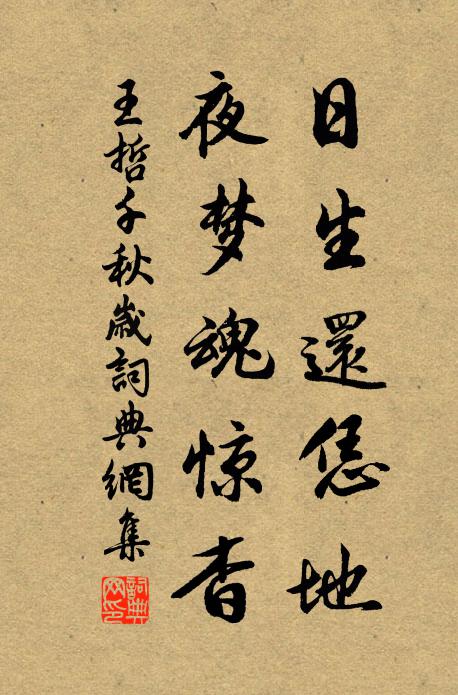 日生還恁地
夜梦魂惊杳
王哲千秋歲詞典網集
詞典网印